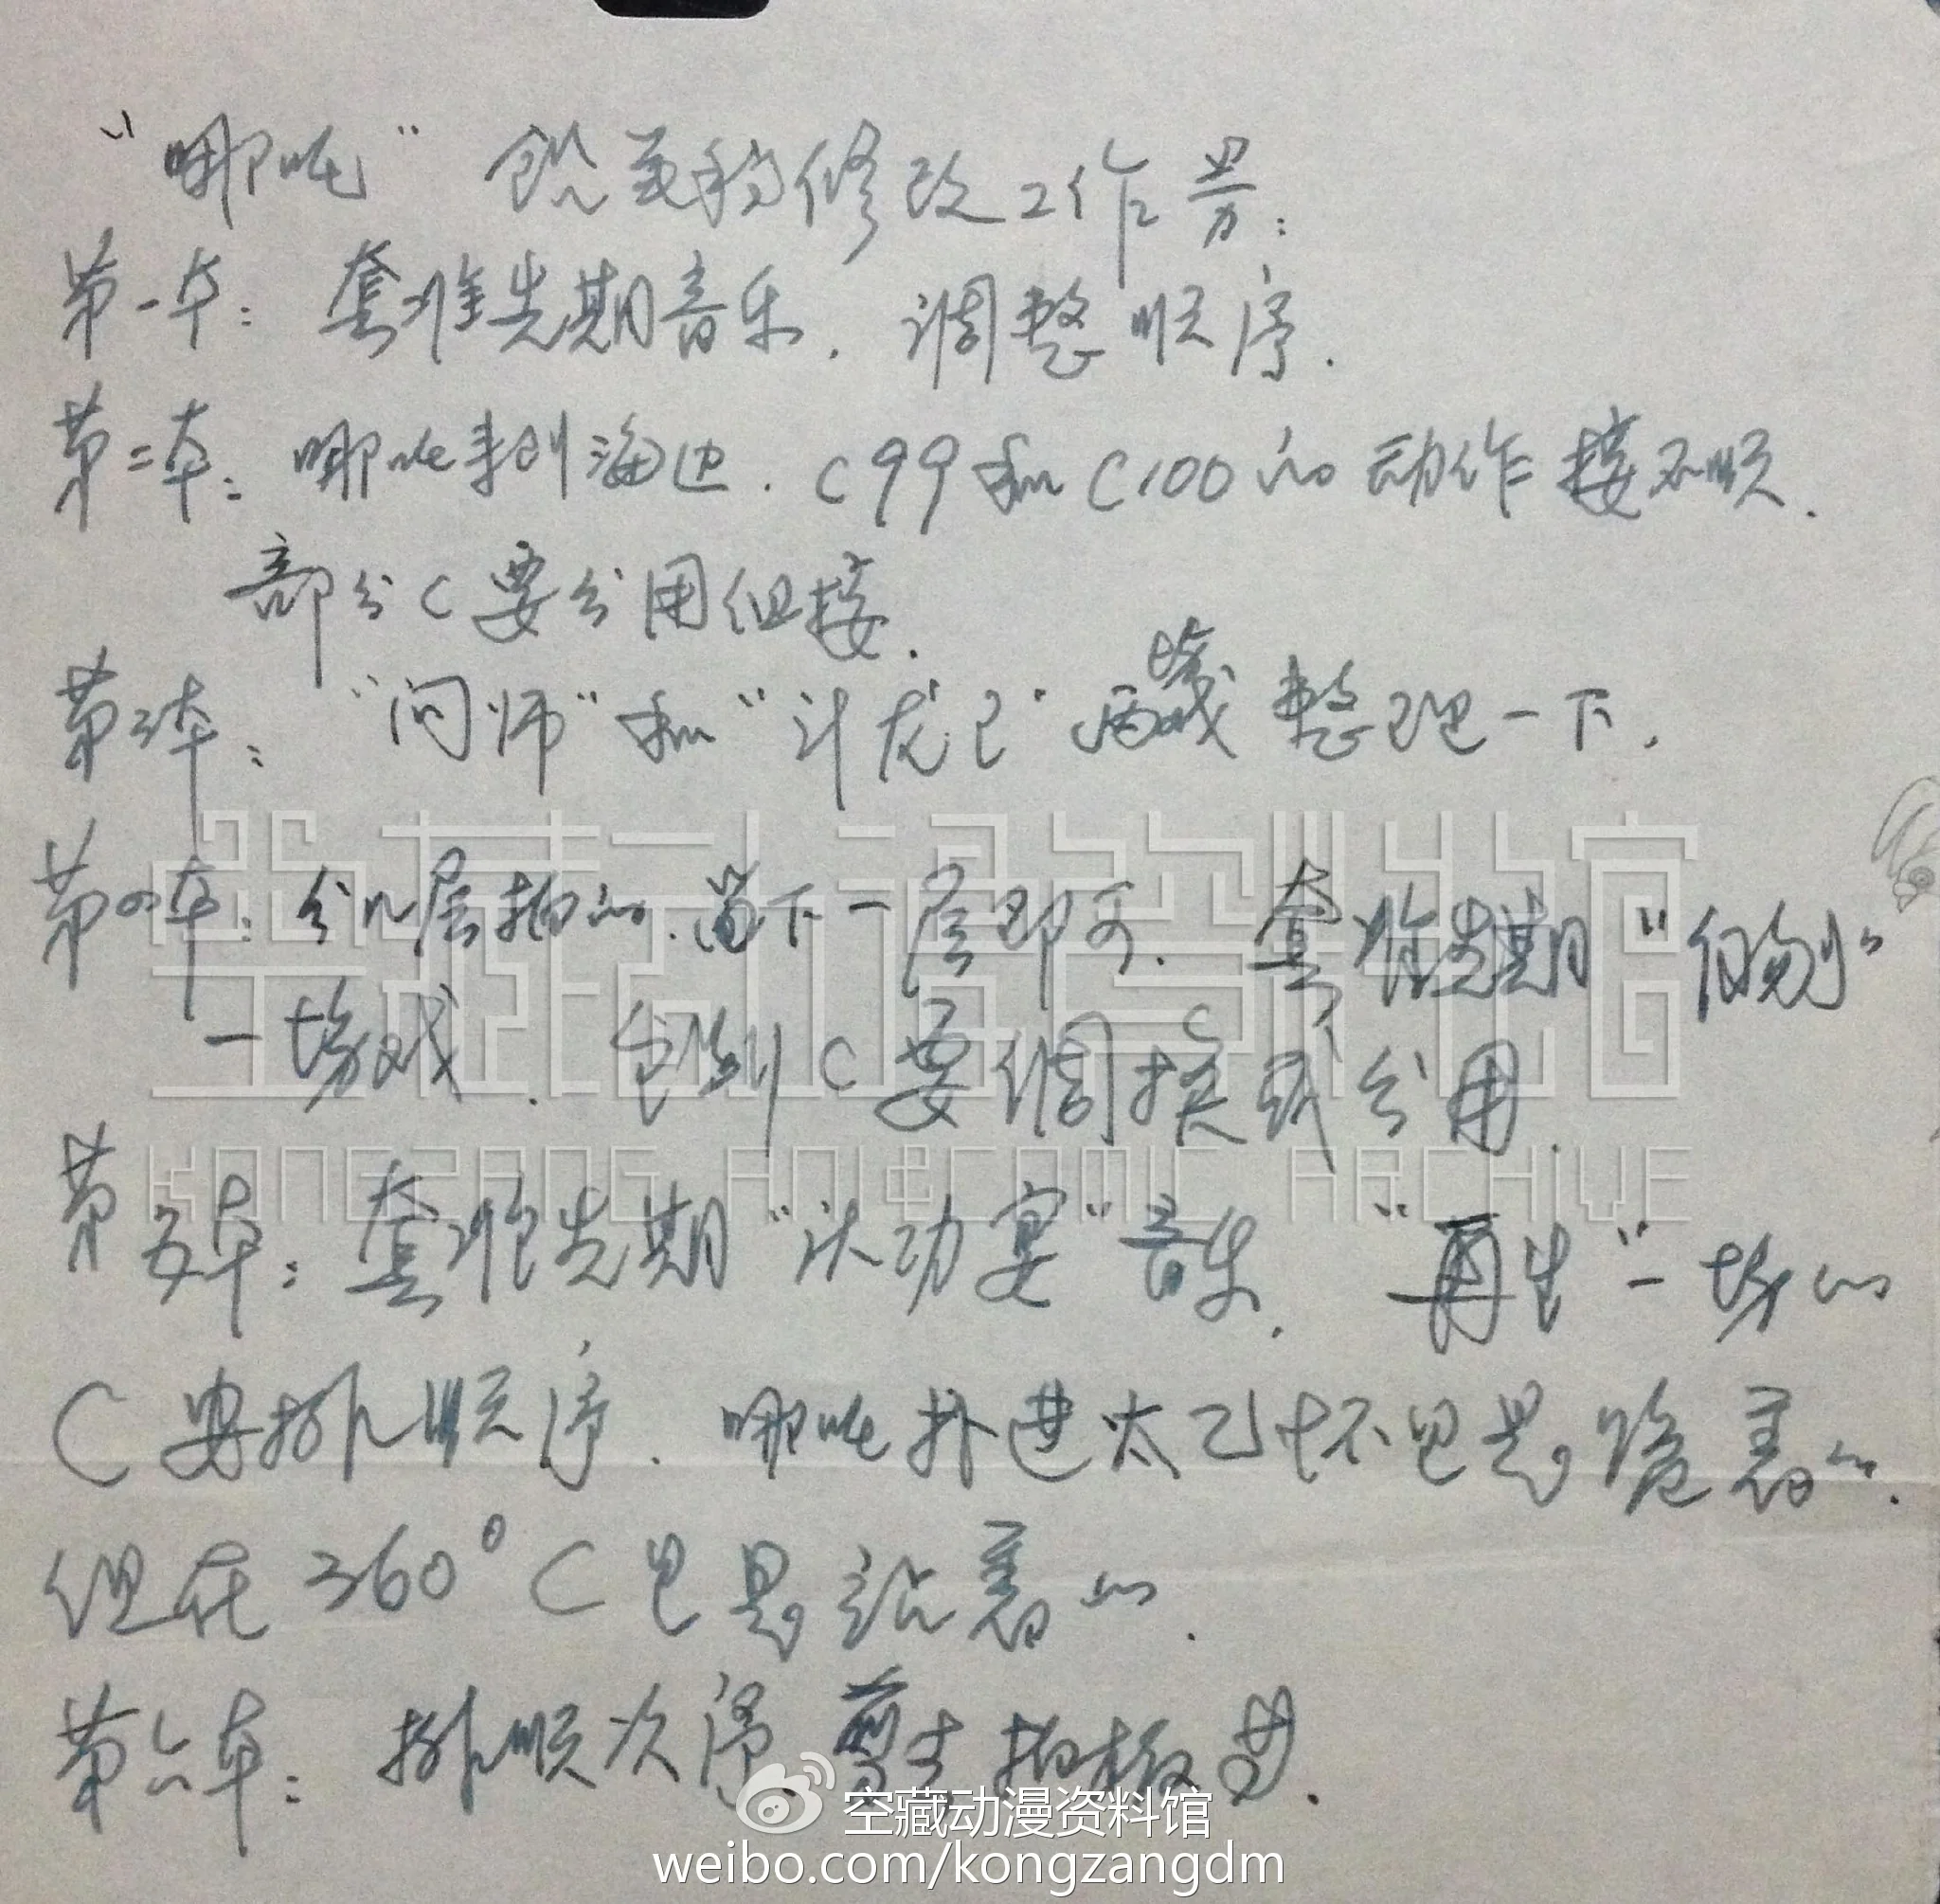 "哪吒" 铅笔稿修改工作另:
第一本: 套准先期音乐. 调整顺序.
第二本: 哪吒来到海边. C99和C100的动作接不顺.
部分C要分用组接.
第三本: "问师"和"斗龙" 两场戏整理一下.
第四本: 分几层拍的.留下一层即可. 套准先期"自刎"
一场戏. 个别C要调换或分用.
第五本: 套准先期"庆功宴"音乐. "再生"一场的
C要排顺序. 哪吒扑进太乙怀里是跪着的.
但在360°C里是站着的.
第六本: 排顺次序. 剪去拍板等.
空藏动漫资料馆
KONGZANG ANI&COMIC ARCHIVE
空藏动漫资料馆
weibo.com/kongzangdm